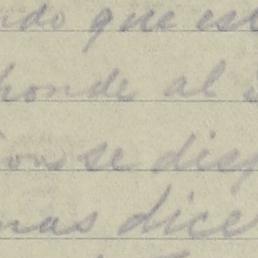 ndo que est
ponde al
ons se disp
mas dice